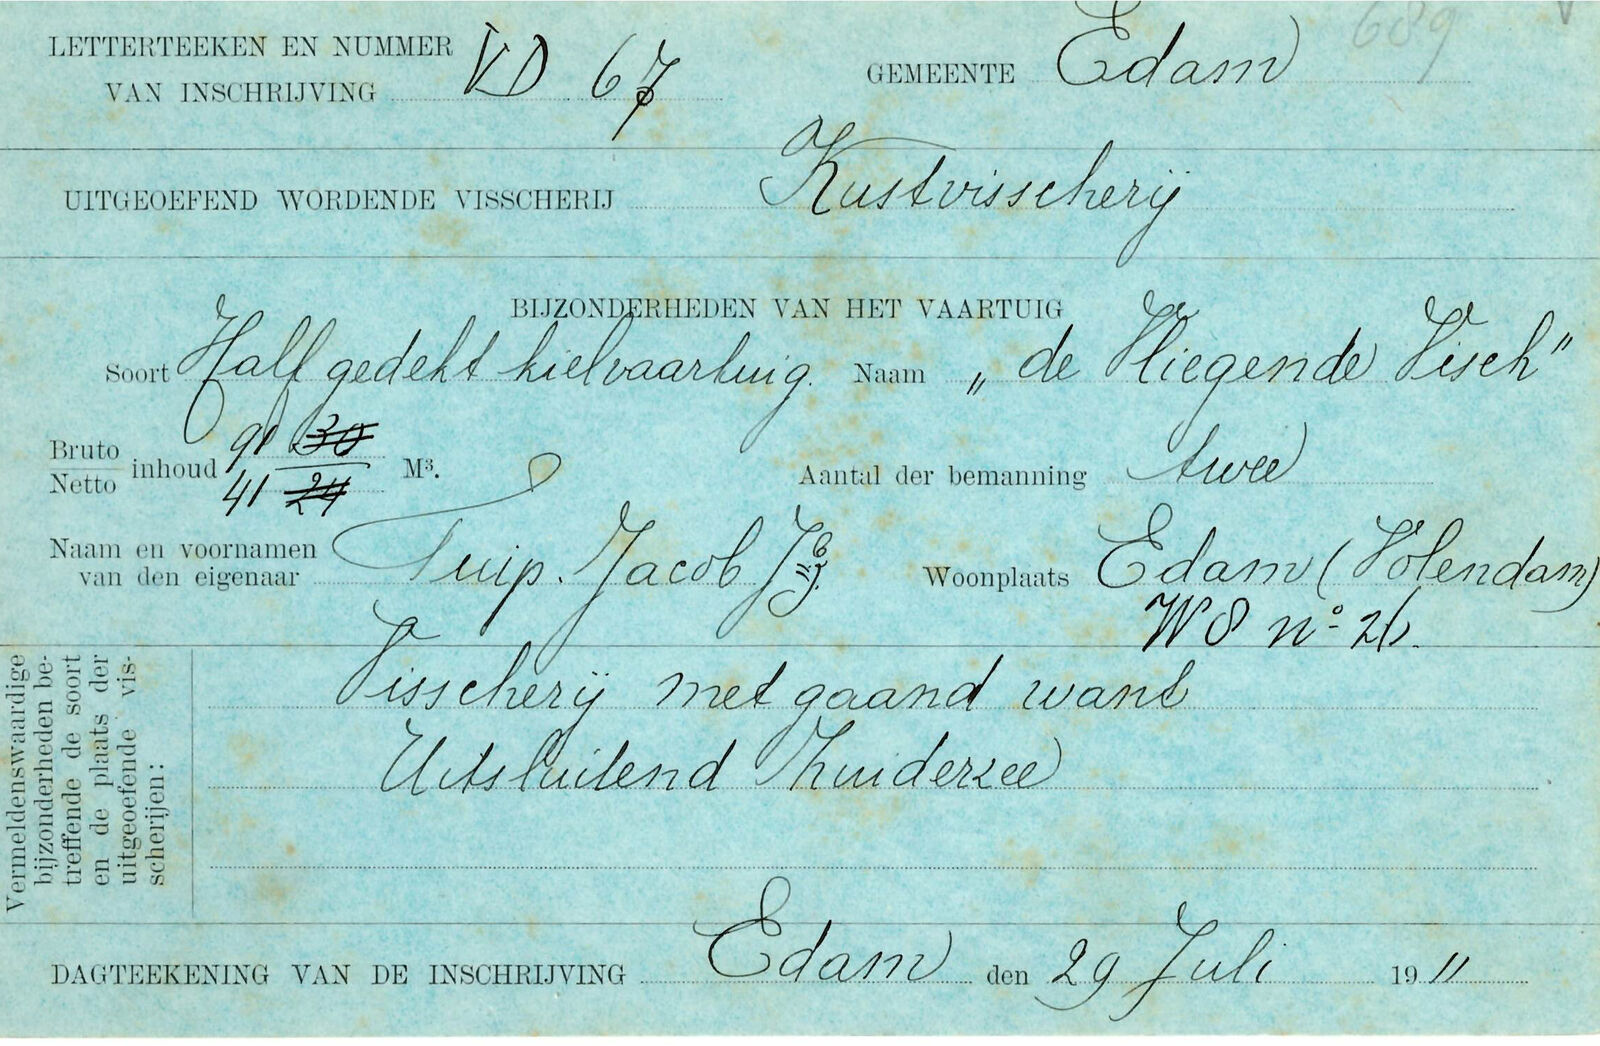 689
LETTERTEEKEN EN NUMMER
VAN INSCHRIJVING VD 67
GEMEENTE Edam
UITGEOEFEND WORDENDE VISSCHERIJ Kustvisscherij
BIJZONDERHEDEN VAN HET VAARTUIG
Soort Half gedekt kielvaartuig. Naam „de Vliegende Visch"
Bruto 91 30
Netto inhoud 41 24 M³.
Aantal der bemanning twee
Naam en voornamen
van den eigenaar Tuip. Jacob
Woonplaats Edam (Volendam)
W 8 no 26.
Vermeldenswaardige
bijzonderheden be-
treffende de soort
en de plaats der
uitgeoefende vis-
scherijen:
Visscherij met gaand want
Uitsluitend Zuiderzee
DAGTEEKENING VAN DE INSCHRIJVING Edam den 29 Juli 1911